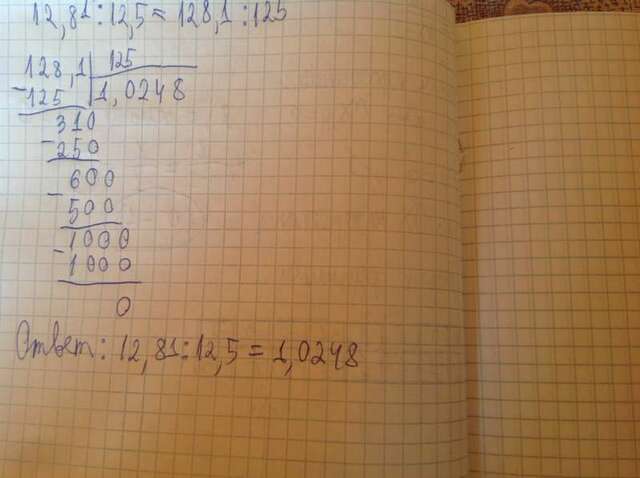 12,81:12,5=128,1:125
128,1 125
-125 1,0248
310
-250
600
-500
-1000
1000
0
Ответ: 12,81:12,5=1,0248